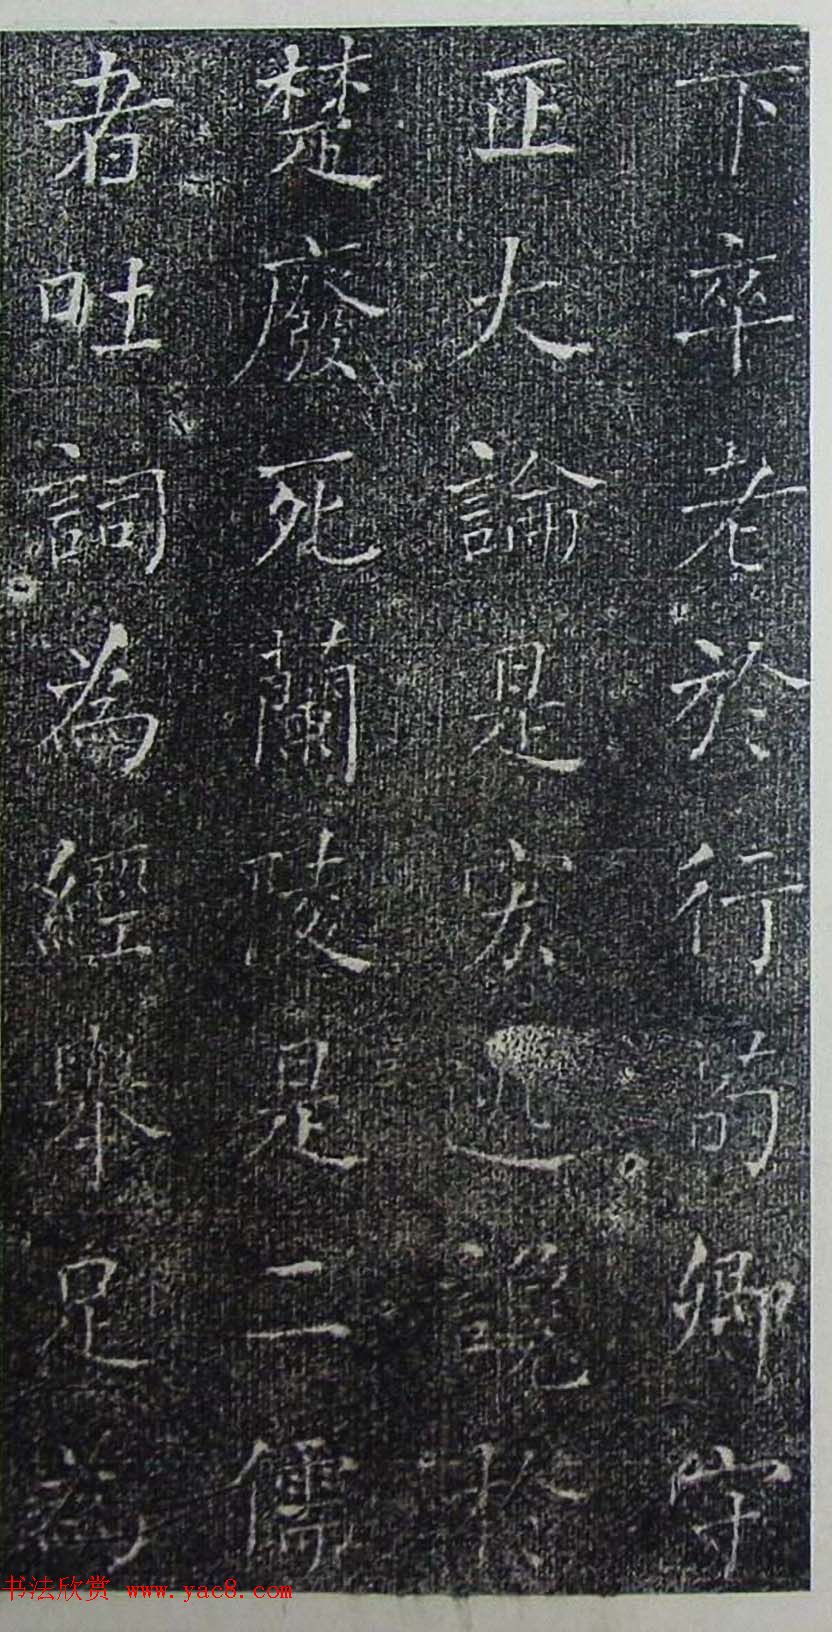 下卒老於行荀卿守
正大論是宏逃說於
楚廢死蘭陵是二儒
者吐詞為經舉足為
书法欣赏 www.yac8.com